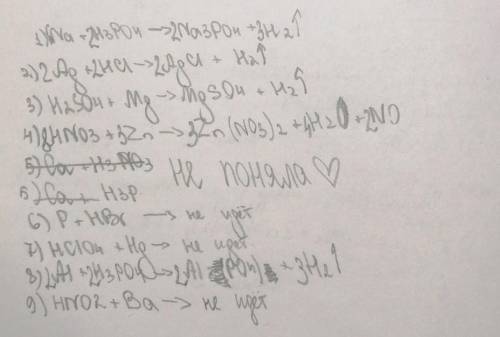 1) 6Na + 2H3PO4 → 2Na3PO4 + 3H2↑
2) 2Ag + 2HCl → 2AgCl + H2↑
3) H2SO4 + Mg → MgSO4 + H2↑
4) 8HNO3 + 3Zn → 3Zn(NO3)2 + 4H2O + 2NO
5) Ca + H3PO3 не поняла ♡
5) Ca + H3P
6) P + HBr → не идёт
7) HClO4 + Hg → не идёт
8) 2Al + 2H3PO4 → 2Al(PO4) + 3H2↑
9) HNO2 + Ba → не идёт